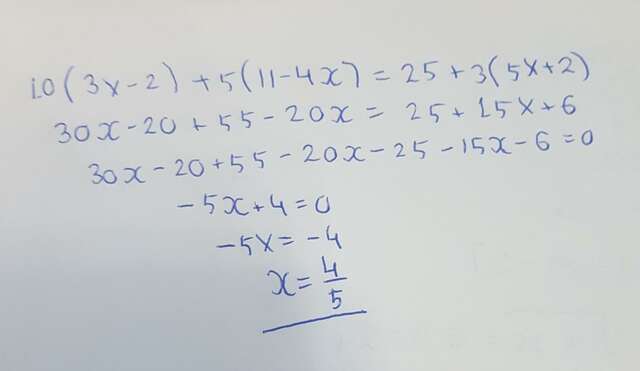 10(3x-2)+5(11-4x)=25+3(5x+2)
30x-20+55-20x=25+15x+6
30x-20+55-20x-25-15x-6=0
-5x+4=0
-5x=-4
x=4/5